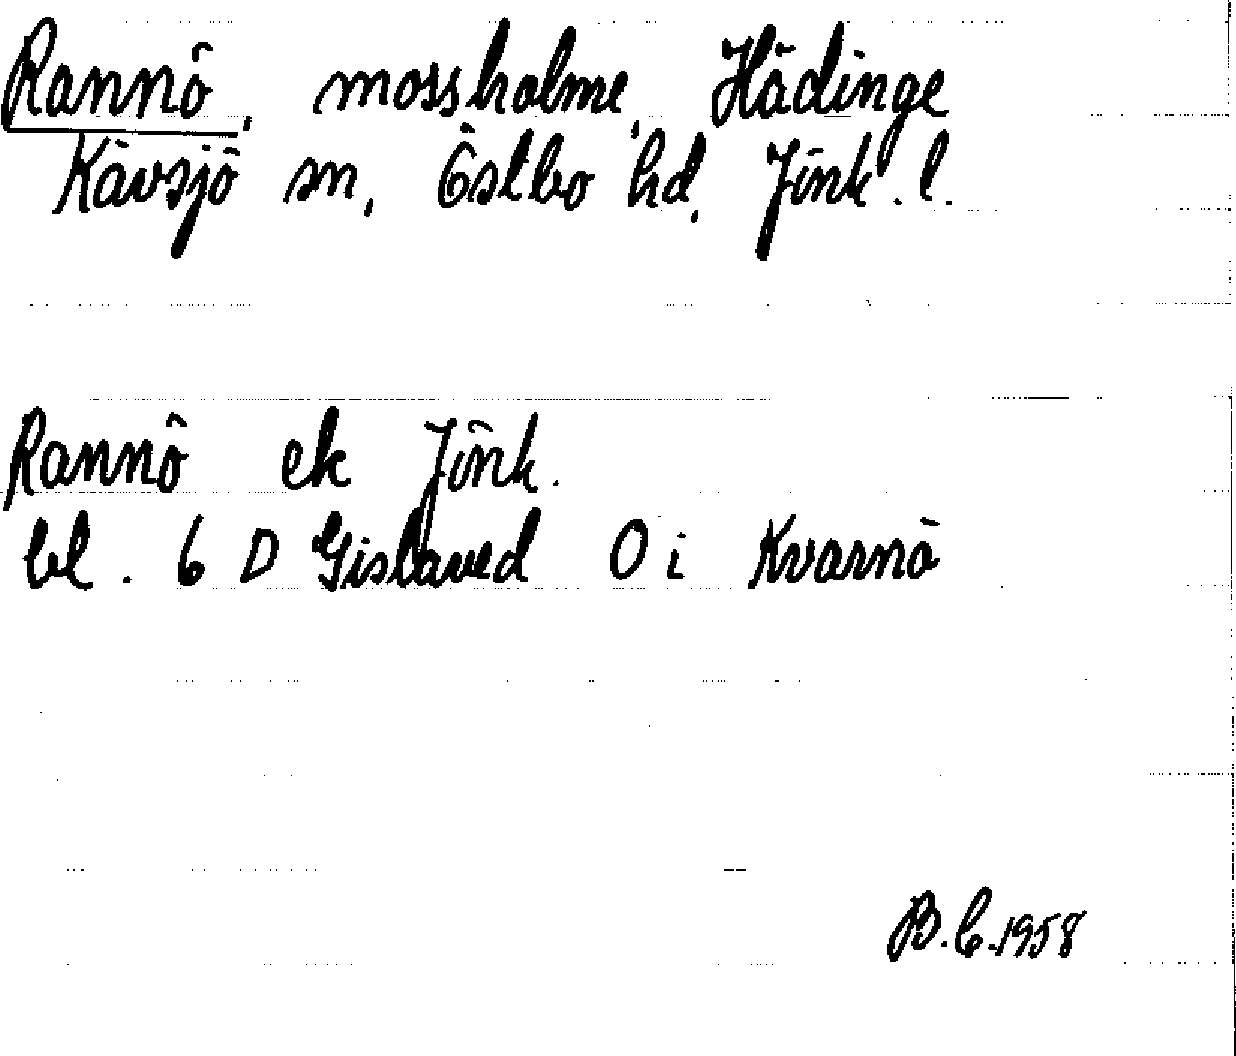 Rannö, mossholme, Hädinge
Kävsjö sn, Östbo hd, Jönk. l.
Rannö ek Jönk.
bl. 6 D Gislaved O i Kvarnö
B.C. 1958